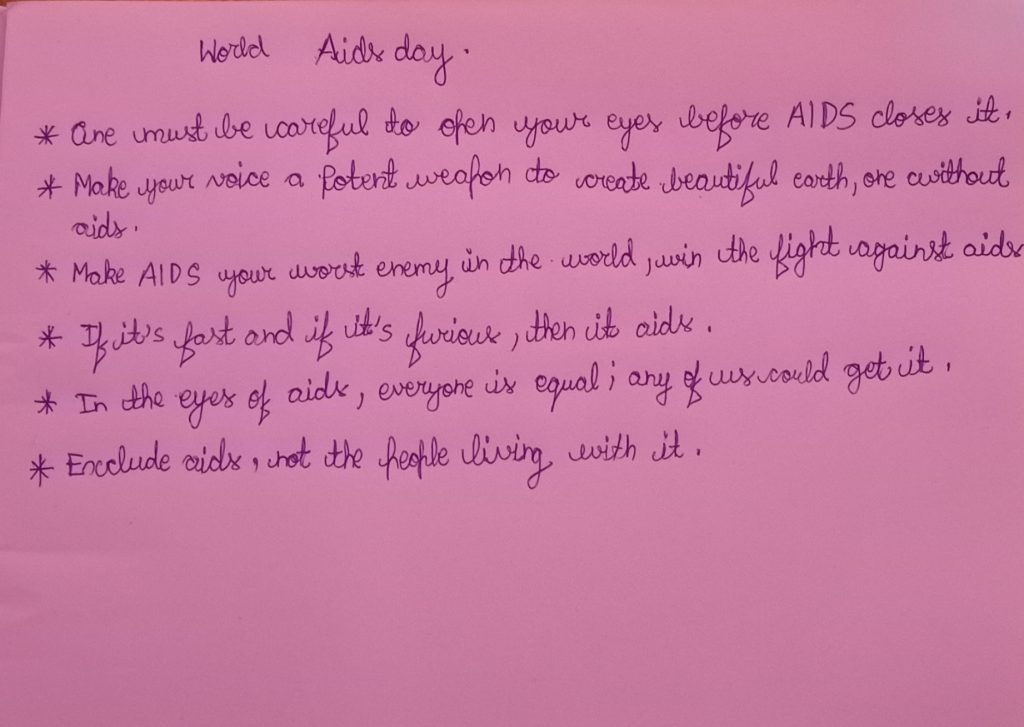 World Aids day.
* One must be careful to open your eyes before AIDS closes it.
* Make your voice a potent weapon to create beautiful earth, one without
aids.
* Make AIDS your worst enemy in the world, win the fight against aids
* If it's fast and if it's furious, then it aids.
* In the eyes of aids, everyone is equal; any of us could get it.
* Exclude aids, not the people living with it.